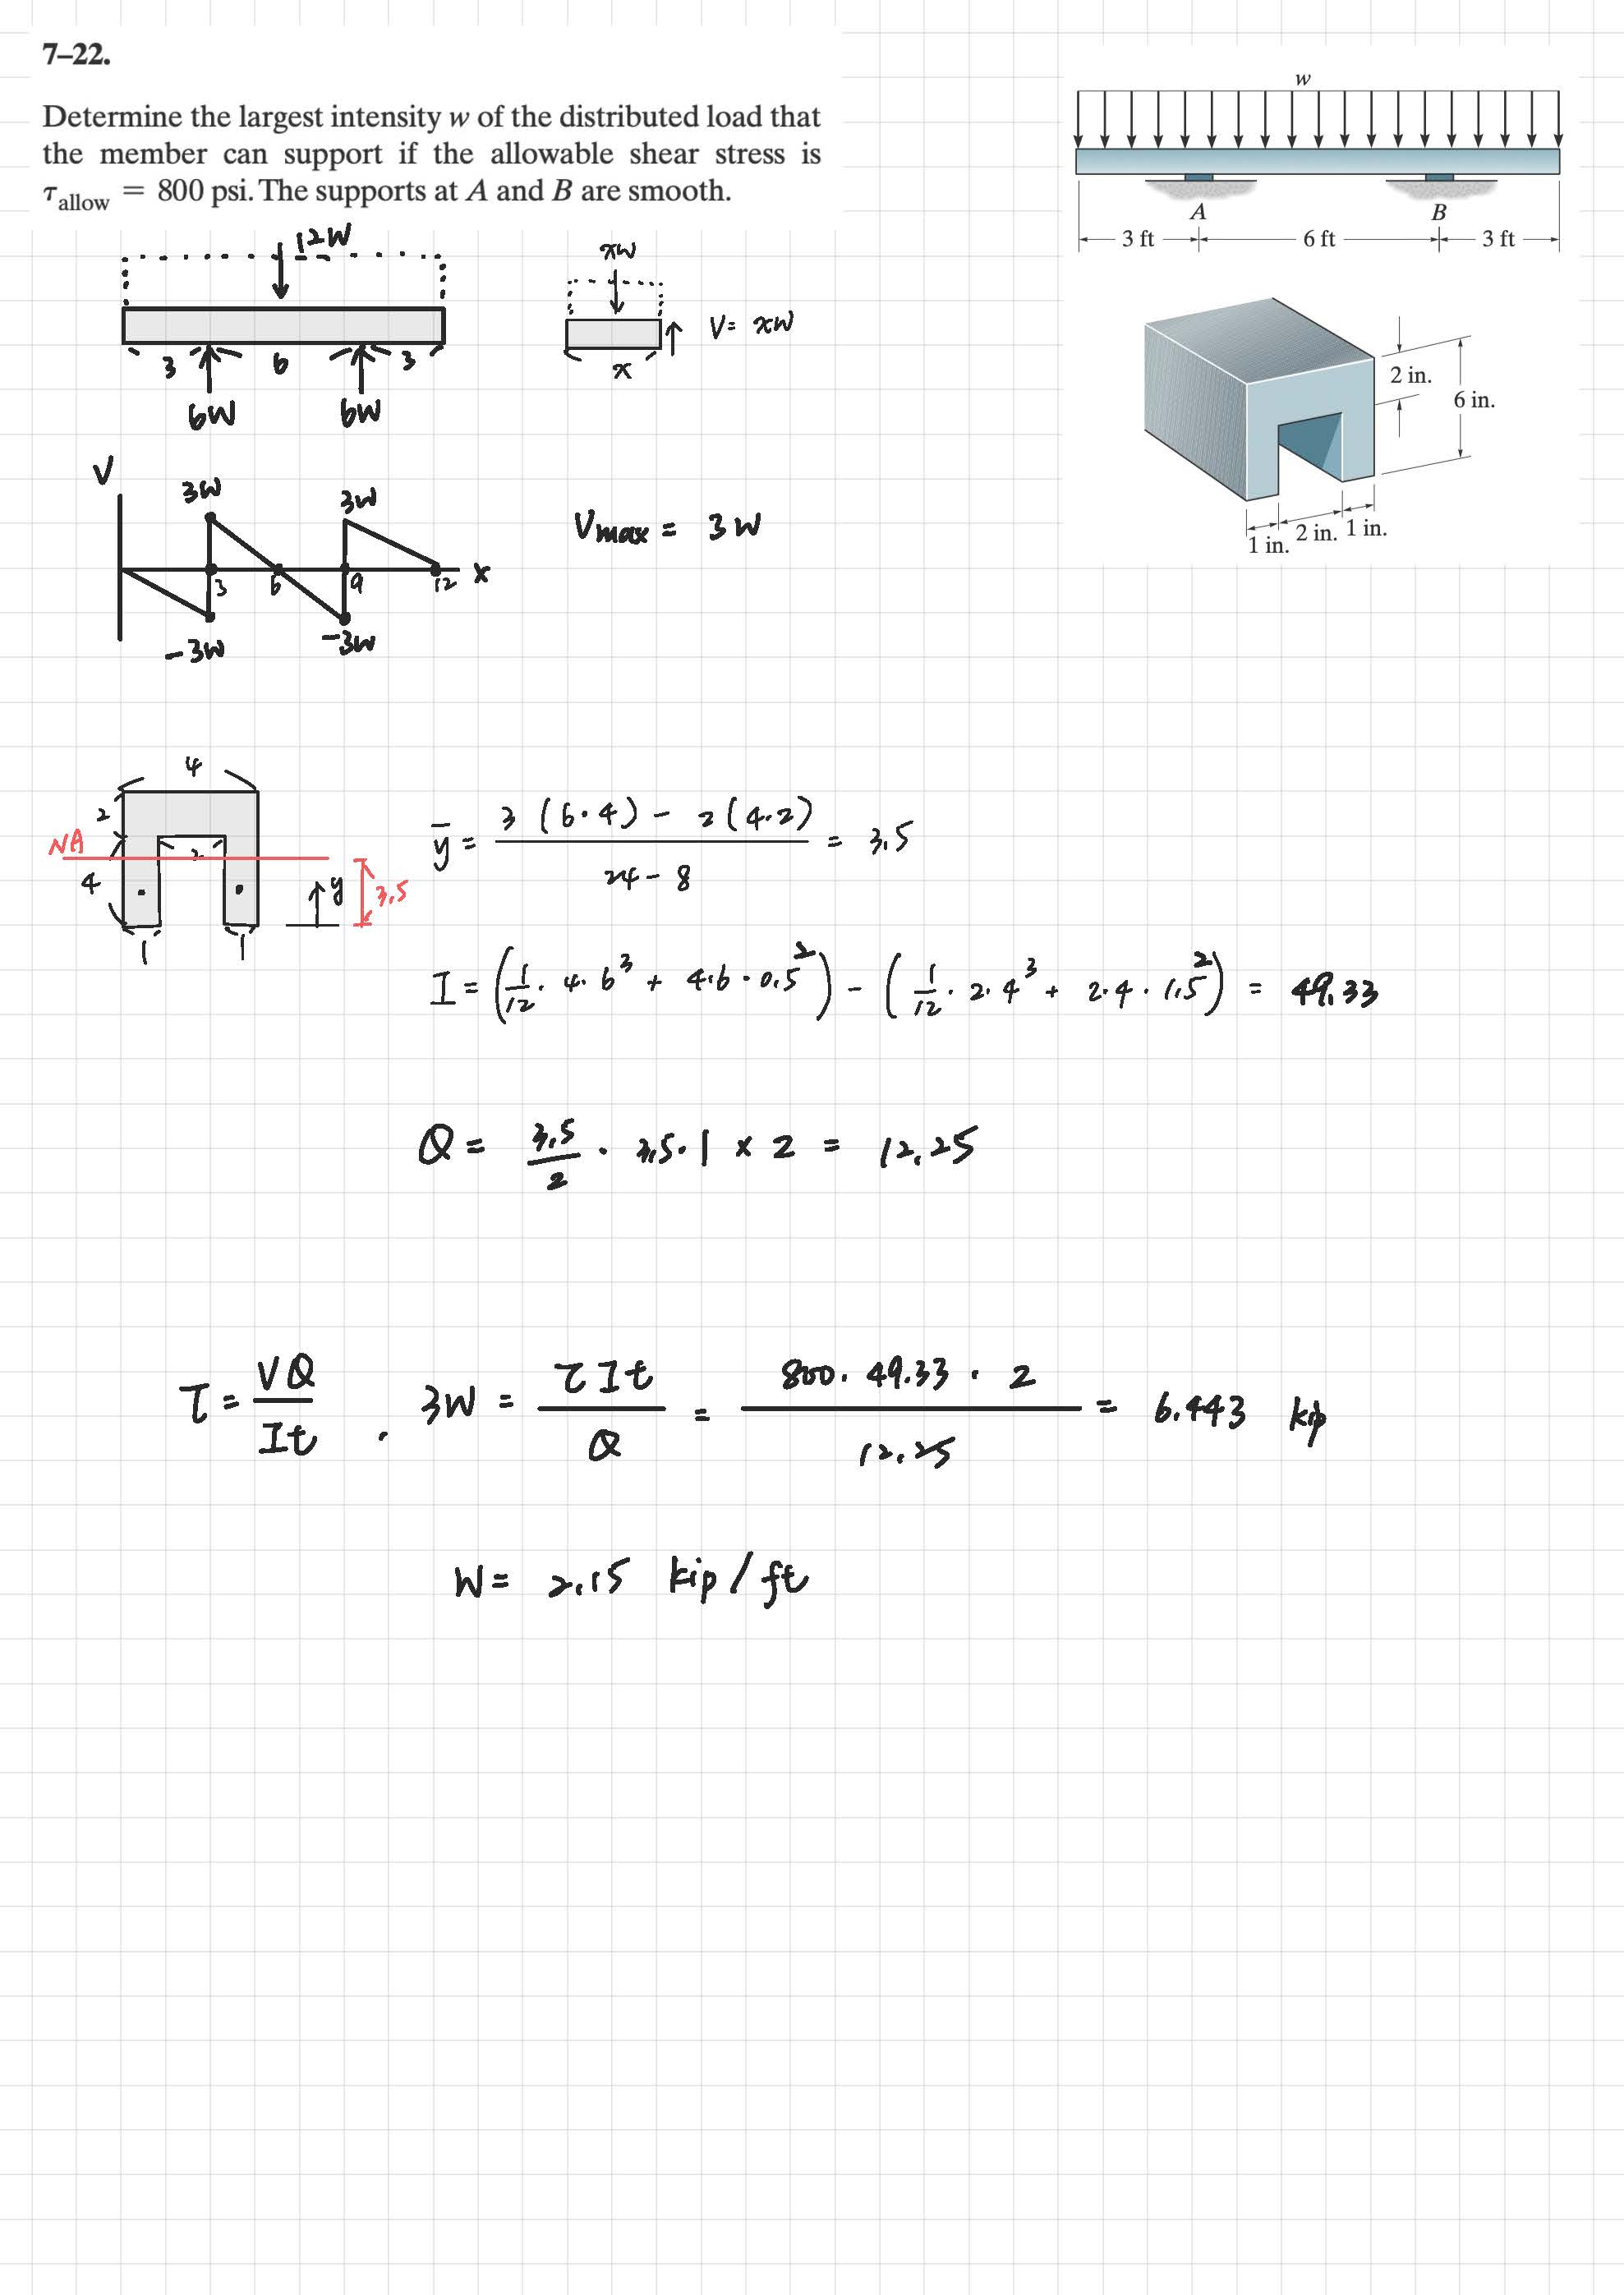 7–22.
Determine the largest intensity w of the distributed load that
the member can support if the allowable shear stress is
τallow = 800 psi. The supports at A and B are smooth.
w
A
B
3 ft
6 ft
3 ft
2 in.
6 in.
1 in.
2 in.
1 in.
12W
3
6
3
6W
6W
xW
V = xW
x
V
3W
3W
3
6
9
12
x
-3W
-3W
Vmax = 3W
4
2
NA
2
4
y
3.5
1
1
ȳ = (3(6·4) - 2(4·2)) / (24 - 8) = 3.5
I = (1/12 · 4 · 6³ + 4·6 · 0.5²) - (1/12 · 2 · 4³ + 2·4 · 1.5²) = 49.33
Q = 3.5/2 · 3.5 · 1 × 2 = 12.25
τ = VQ/It . 3W = τIt/Q = 800 · 49.33 · 2 / 12.25 = 6.443 kip
W = 2.15 kip/ft